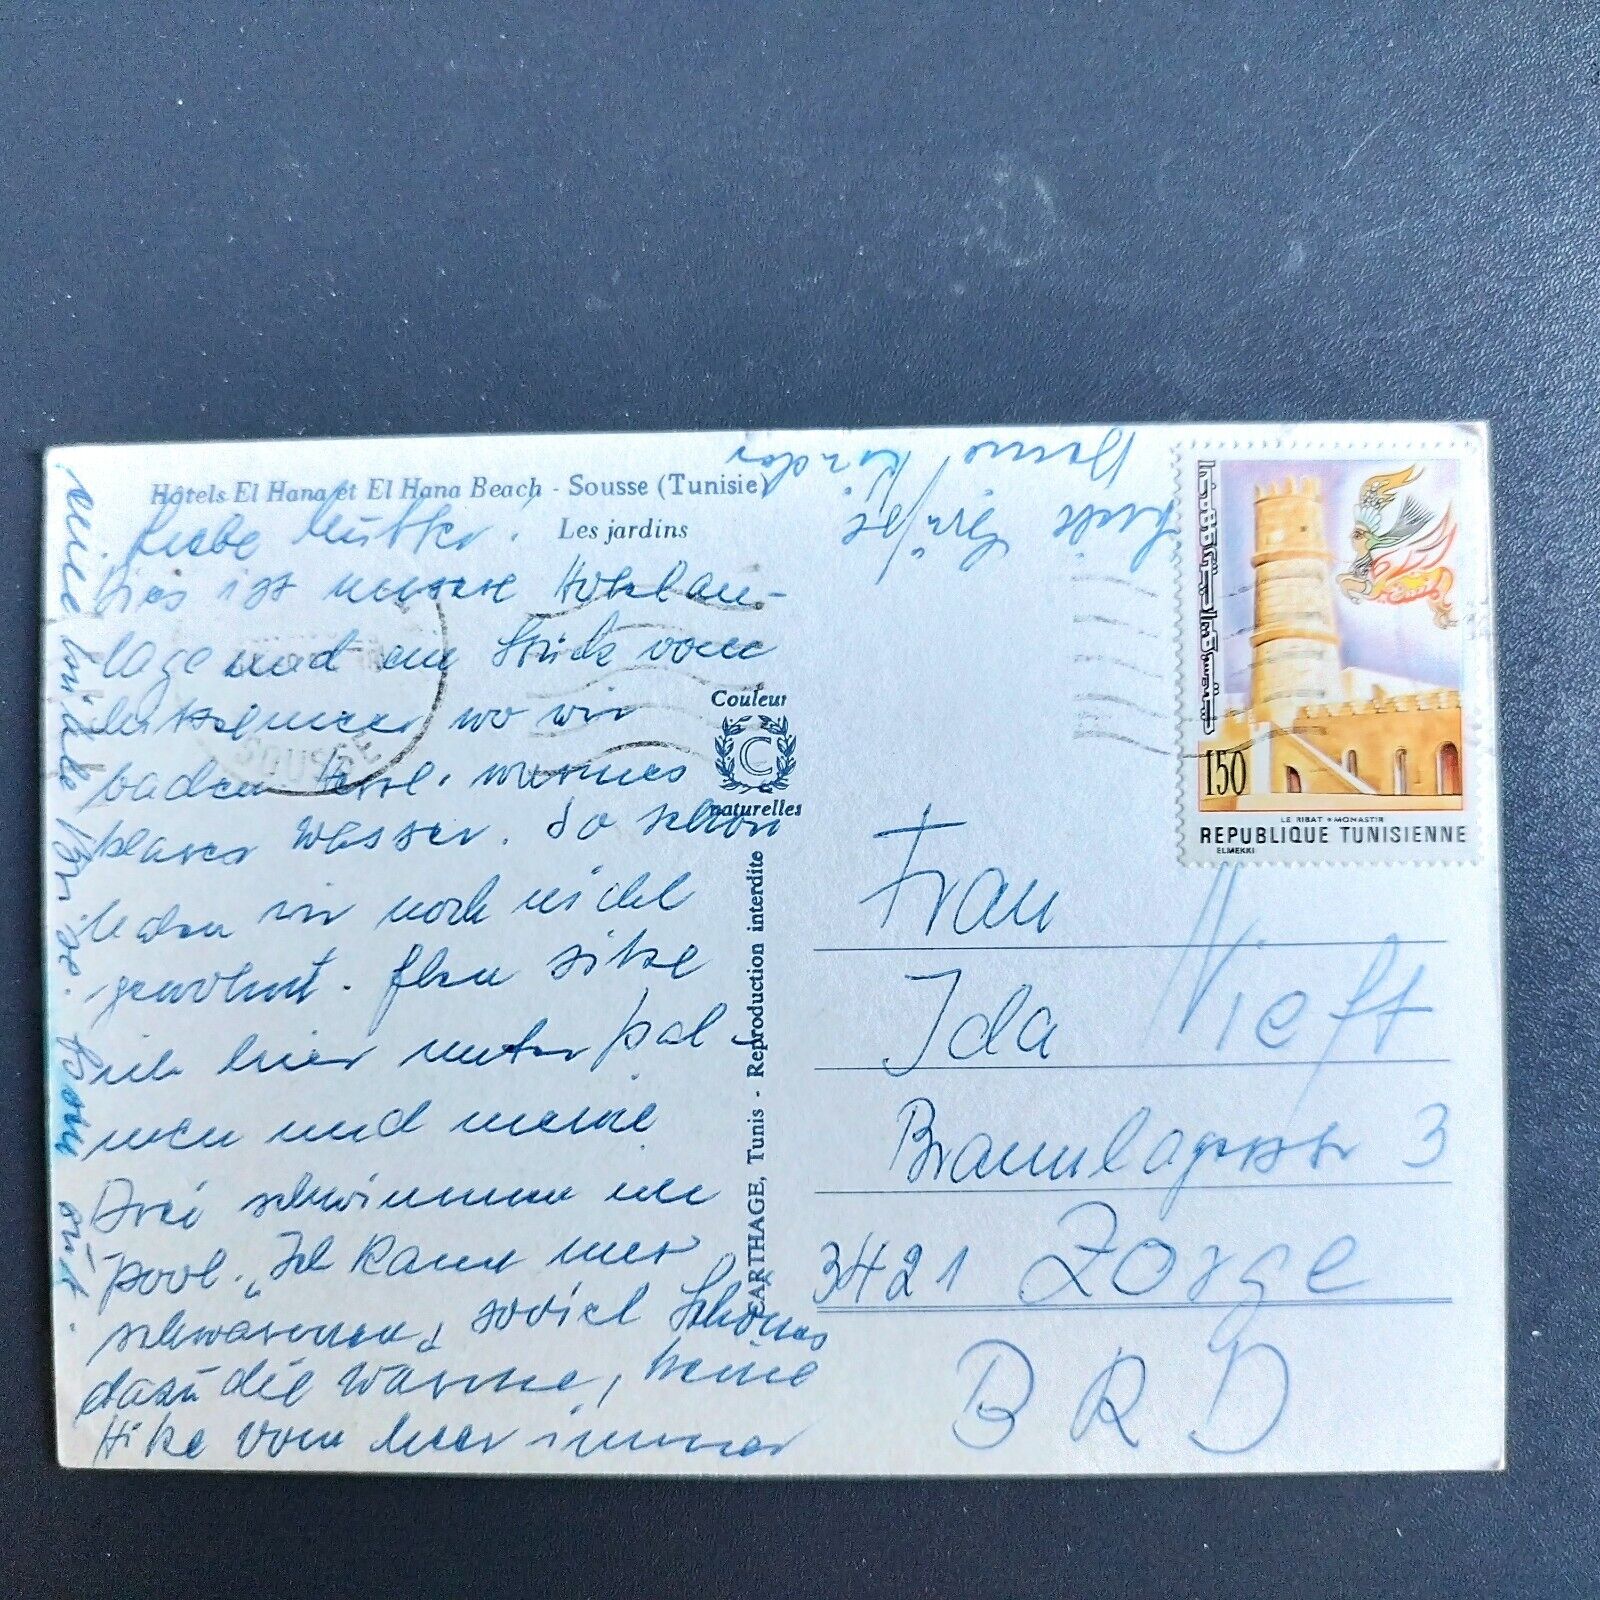 Hôtels El Hana et El Hana Beach - Sousse (Tunisie)
Les jardins
Liebe Mutter!
Dies ist unsere Hotelan-
lage und ein Stück vom
Mittelmeer wo wir
baden. warmes
klares Wasser. So schön
haben wir noch nicht
gewohnt. Eben sitze
ich hier unter Pal-
men und meine
Drei schwimmen im
Pool. "Ich kann nur
schwärmen, soviel Schönes
dazu die Wärme, keine
Hitze vom Meer immer
eine milde Brise.
Liebe Grüße
Deine Kinder
Couleur
C
naturelles
CARTHAGE, Tunis - Reproduction interdite
SOUSSE
150
LE RIBAT * MONASTIR
REPUBLIQUE TUNISIENNE
ELMEKKI
Frau
Ida Nieft
Braunlagerstr 3
3421 Zorge
BRD